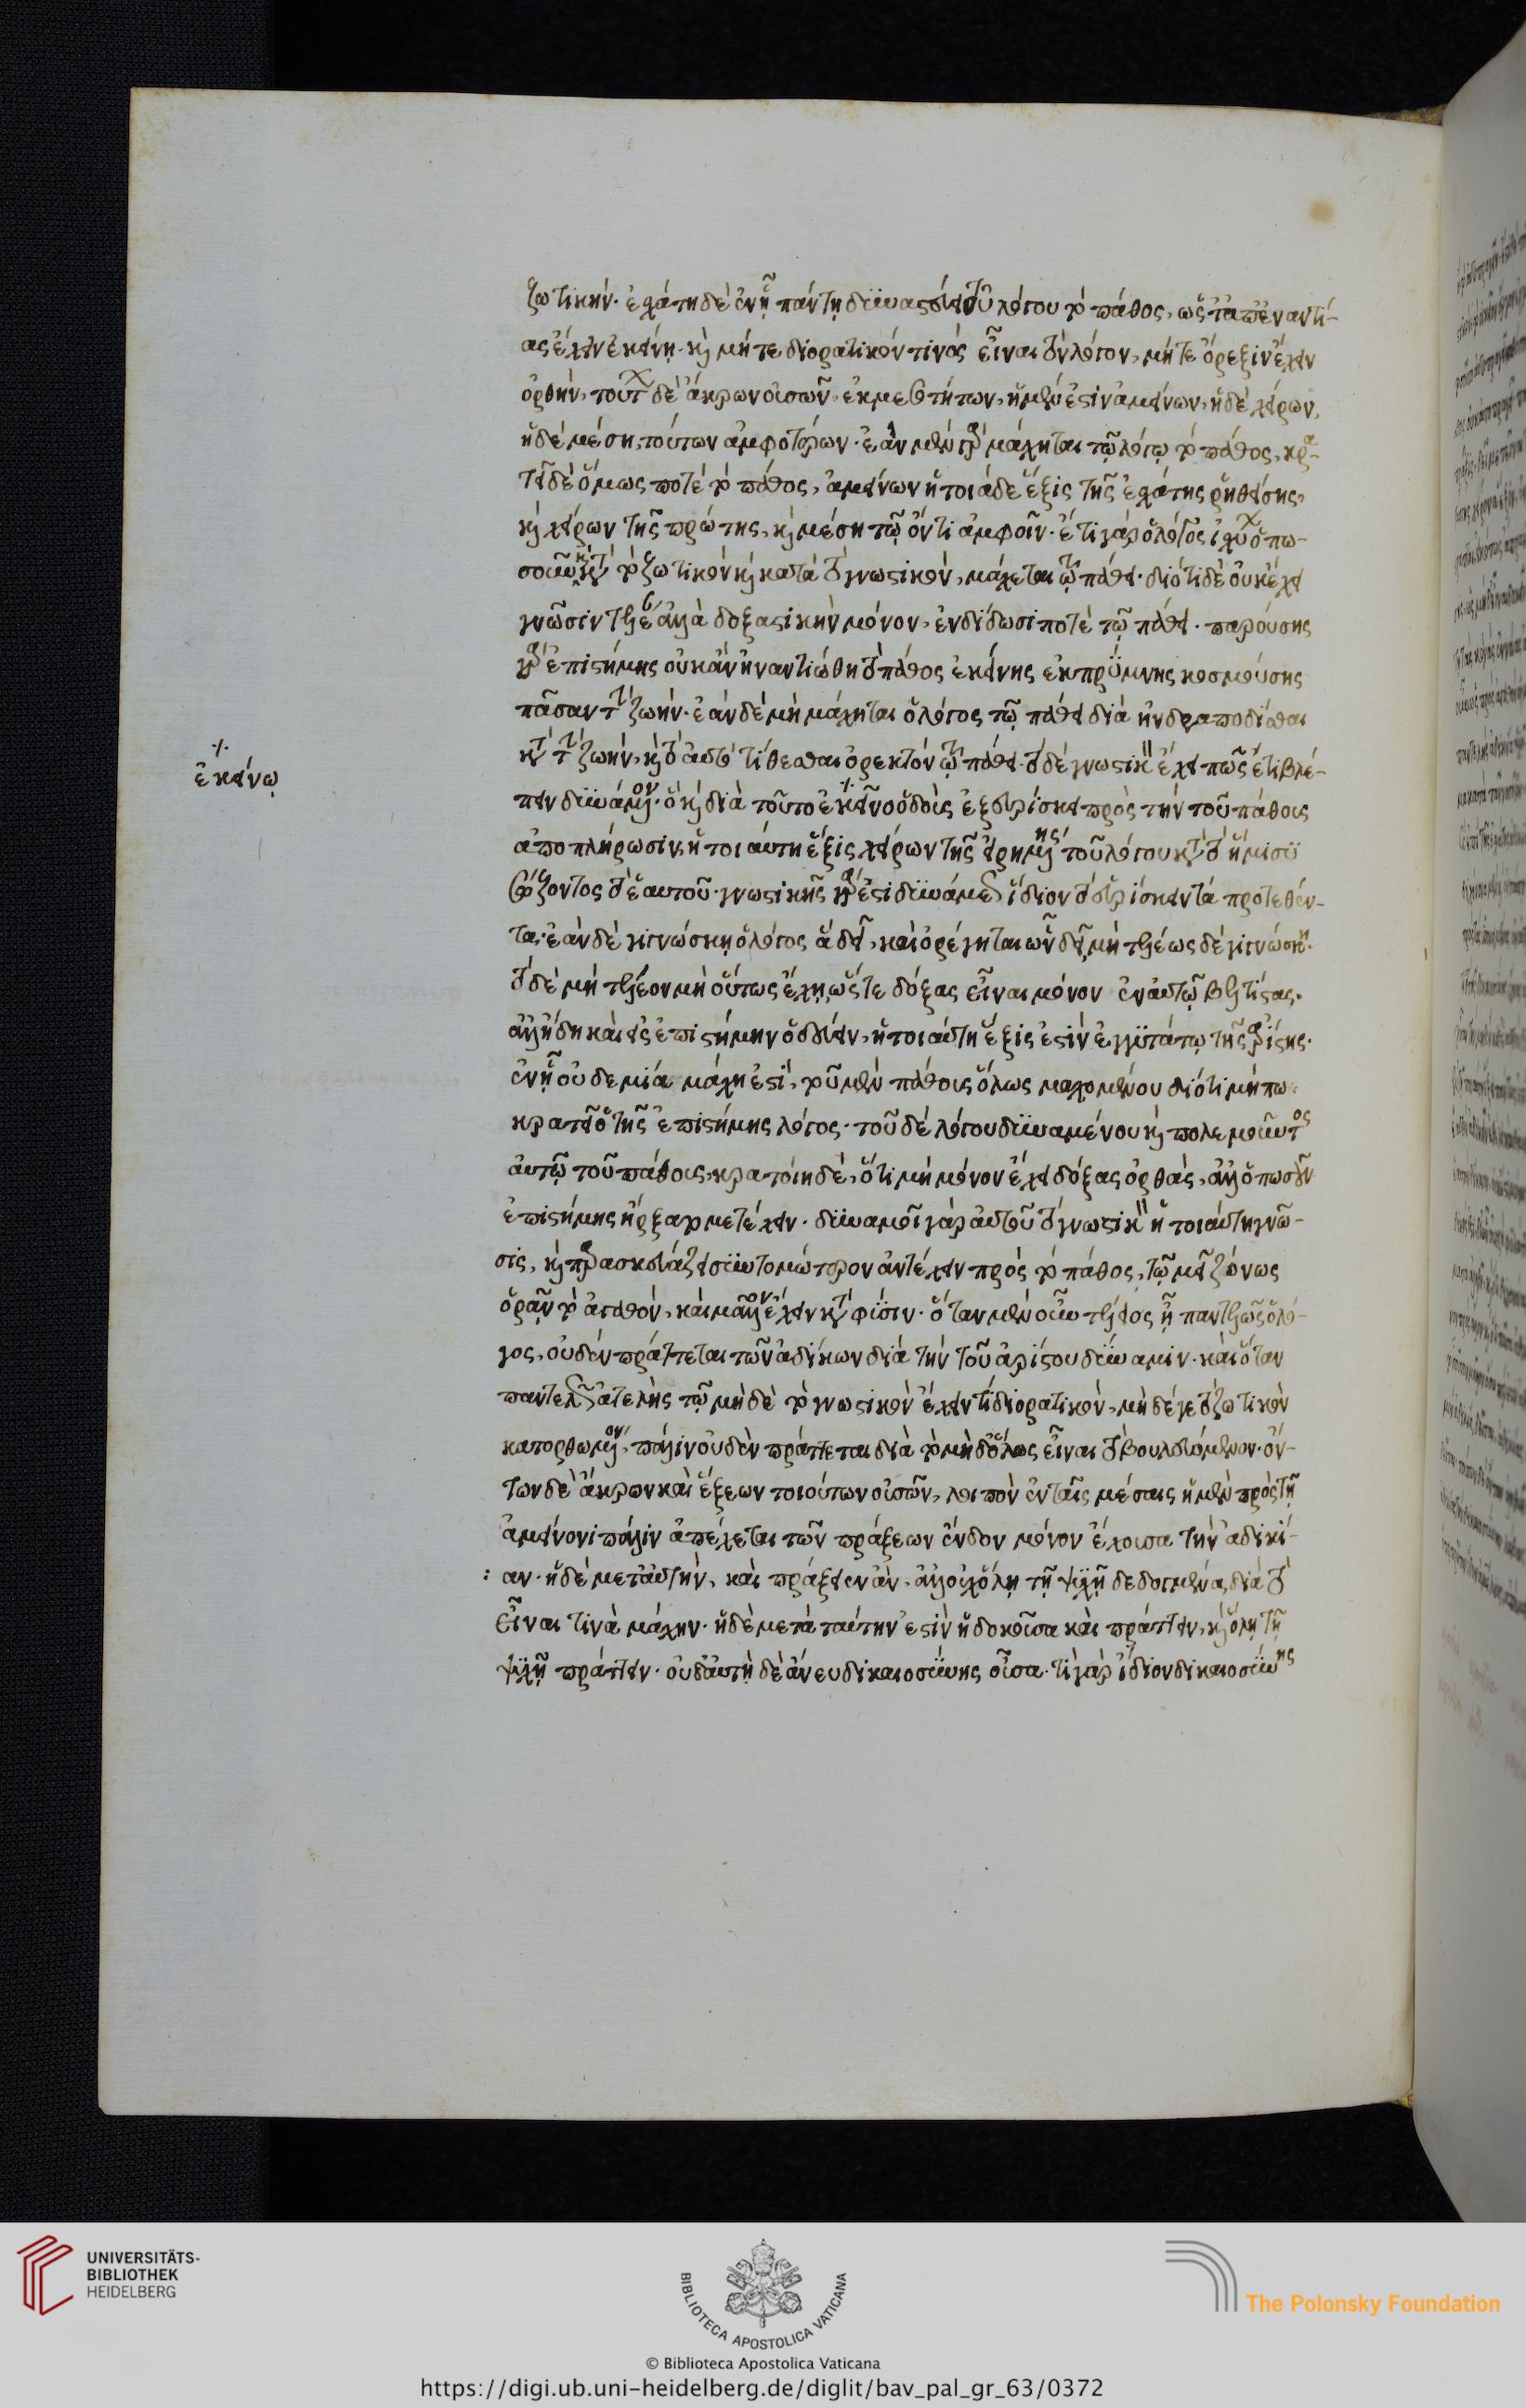 ζωτικήν. ἐχάτη δὲ ἐν ᾗ πάντῃ δυναστεύει τοῦ λόγου τὸ πάθος, ὡς τὰ ἀπεναντί-
ας ἔχειν ἐκείνῃ. καὶ μήτε διορατικόν τινός εἶναι τὸν λόγον, μήτε ὄρεξιν ἔχειν
ὀρθήν, τούτων δὲ ἄκρων οὐσῶν, ἐκ μεσοτήτων, ἡ μέν ἐστιν ἀμείνων, ἡ δὲ χείρων,
ἡ δὲ μέση τούτων ἀμφοτέρων. ἐὰν μὲν γὰρ μάχηται τῷ λόγῳ τὸ πάθος, κρα-
τεῖ δὲ ὅμως ποτὲ τὸ πάθος, ἀμείνων ἡ τοιάδε ἕξις τῆς ἐχάτης ῥηθείσης,
καὶ χείρων τῆς πρώτης, καὶ μέση τῷ ὄντι ἀμφοῖν. ἔτι γὰρ ὁ λόγος ἰσχύων ὁπω-
σοῦν καὶ κατὰ τὸ ζωτικὸν καὶ κατὰ τὸ γνωστικόν, μάχεται τῷ πάθει. διότι δὲ οὐκ ἔχει
γνῶσιν τελέαν ἀλλὰ δοξαστικὴν μόνον, ἐνδίδωσι ποτὲ τῷ πάθει. παρούσης
γὰρ ἐπιστήμης οὐκ ἂν ἠναντιώθη τὸ πάθος ἐκείνης ἐκ πρύμνης κοσμούσης
πᾶσαν τὴν ζωήν. ἐὰν δὲ μὴ μάχηται ὁ λόγος τῷ πάθει διὰ ἠνδραποδίσθαι
κατὰ τὴν ζωήν, καὶ τὸ αὐτὸ τίθεσθαι ὀρεκτὸν τῷ πάθει. τὸ δὲ γνωστικὸν ἔχει πῶς ἔτι βλέ-
πειν δυνάμενον. ὃ καὶ διὰ τοῦτο ἐκεῖνο ὁδοὺς ἐξευρίσκει πρὸς τὴν τοῦ πάθους
ἀποπλήρωσιν, ἡ τοιαύτη ἕξις χείρων τῆς εἰρημένης τοῦ λόγου κατὰ τὸ ἥμισυ
σῴζοντος τὸ ἑαυτοῦ. γνωστικῆς γάρ ἐστι δυνάμεως ἴδιον τὸ εὑρίσκειν τὰ προτεθέν-
τα. ἐὰν δὲ γιγνώσκῃ ὁ λόγος ἃ δεῖ, καὶ ὀρέγηται ὧν δεῖ, μὴ τελέως δὲ γιγνώσκῃ.
τὸ δὲ μὴ τελέον μὴ οὕτως ἔχῃ, ὥστε δόξας εἶναι μόνον ἐν αὐτῷ βελτίστας.
ἀλλ' ἤδη καὶ εἰς ἐπιστήμην ὁδεύειν, ἡ τοιαύτη ἕξις ἐστὶν ἐγγυτάτω τῆς ἀρίστης.
ἐν ᾗ οὐδεμία μάχη ἐστί, τοῦ μὲν πάθους ὅλως μαχομένου διότι μήπω
κρατεῖ ὁ τῆς ἐπιστήμης λόγος. τοῦ δὲ λόγου δυναμένου καὶ πολεμοῦντος
αὐτῷ τοῦ πάθους, κρατοίη δέ, ὅτι μὴ μόνον ἔχει δόξας ὀρθάς, ἀλλ' ὁπωσοῦν
ἐπιστήμης ἤρξατο μετέχειν. δυναμοῖ γὰρ αὐτοῦ τὸ γνωστικὸν ἡ τοιαύτη γνῶ-
σις, καὶ παρασκευάζει συντομώτερον ἀντέχειν πρὸς τὸ πάθος, τῷ μειζόνως
ὁρᾶν τὸ ἀγαθόν, καὶ μᾶλλον ἔχειν κατὰ φύσιν. ὅταν μὲν οὖν τέλειος ᾖ παντελῶς ὁ λό-
γος, οὐδὲν πράττεται τῶν ἀδίκων διὰ τὴν τοῦ ἀρίστου δύναμιν. καὶ ὅταν
παντελῶς ἀτελὴς τῷ μηδὲ τὸ γνωστικὸν ἔχειν τι διορατικόν, μηδέ γε τὸ ζωτικὸν
κατορθωμένον, πάλιν οὐδὲν πράττεται διὰ τὸ μηδ' ὅλως εἶναι τὸ βουλευόμενον. ὄν-
των δὲ ἄκρων καὶ ἕξεων τοιούτων οὐσῶν, λοιπὸν ἐν ταῖς μέσαις ἡ μὲν πρὸς τῇ
ἀμείνονι πάλιν ἀπέχεται τῶν πράξεων ἔνδον μόνον ἔχουσα τὴν ἀδικί-
αν. ἡ δὲ μετ' αὐτήν, καὶ πράξειεν ἄν. ἀλλ' οὐχ ὅλῃ τῇ ψυχῇ δεδογμένα, διὰ τὸ
εἶναι τινὰ μάχην. ἡ δὲ μετὰ ταύτην ἐστὶν ἡ δοκοῦσα καὶ πράττειν, καὶ ὅλῃ τῇ
ψυχῇ πράττειν. οὐδ' αὐτὴ δὲ ἄνευ δικαιοσύνης οὖσα. τί γὰρ ἴδιον δικαιοσύνης
ἐκείνῳ
UNIVERSITÄTS-
BIBLIOTHEK
HEIDELBERG
BIBLIOTECA APOSTOLICA VATICANA
The Polonsky Foundation
© Biblioteca Apostolica Vaticana
https://digi.ub.uni-heidelberg.de/diglit/bav_pal_gr_63/0372